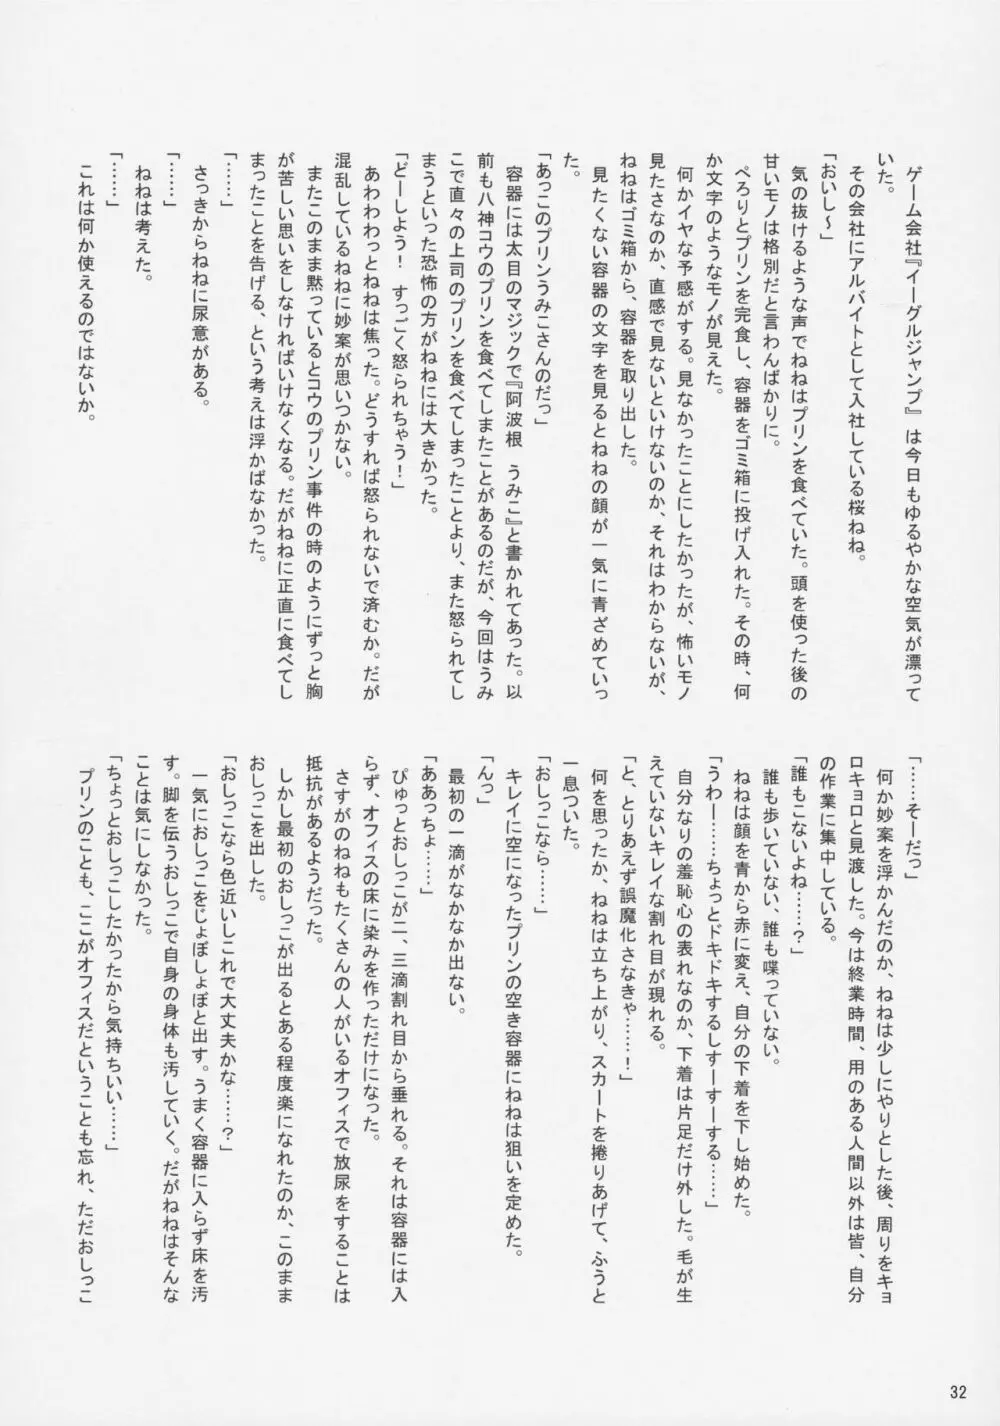 ゲーム会社『イーグルジャンプ』は今日もゆるやかな空気が漂って
いた。
その会社にアルバイトとして入社している桜ねね。
「おいし〜」
気の抜けるような声でねねはプリンを食べていた。頭を使った後の
甘いモノは格別だと言わんばかりに。
ぺろりとプリンを完食し、容器をゴミ箱に投げ入れた。その時、何
か文字のようなモノが見えた。
何かイヤな予感がする。見なかったことにしたかったが、怖いモノ
見たさなのか、直感で見ないといけないのか、それはわからないが、
ねねはゴミ箱から、容器を取り出した。
見たくない容器の文字を見るとねねの顔が一気に青ざめていっ
た。
「あっこのプリンうみこさんのだっ」
容器には太目のマジックで『阿波根 うみこ』と書かれてあった。以
前も八神コウのプリンを食べてしまたことがあるのだが、今回はうみ
こで直々の上司のプリンを食べてしまったことより、また怒られてし
まうといった恐怖の方がねねには大きかった。
「どーしよう！ すっごく怒られちゃう！」
あわわわっとねねは焦った。どうすれば怒られないで済むか。だが
混乱しているねねに妙案が思いつかない。
またこのまま黙っているとコウのプリン事件の時のようにずっと胸
が苦しい思いをしなければいけなくなる。だがねねに正直に食べてし
まったことを告げる、という考えは浮かばなかった。
「……」
さっきからねねに尿意がある。
「……」
ねねは考えた。
「……」
これは何か使えるのではないか。
「……そーだっ」
何か妙案を浮かんだのか、ねねは少しにやりとした後、周りをキョ
ロキョロと見渡した。今は終業時間、用のある人間以外は皆、自分
の作業に集中している。
「誰もこないよね……？」
誰も歩いていない、誰も喋っていない。
ねねは顔を青から赤に変え、自分の下着を下し始めた。
「うわー……ちょっとドキドキするしすーすーする……」
自分なりの羞恥心の表れなのか、下着は片足だけ外した。毛が生
えていないキレイな割れ目が現れる。
「と、とりあえず誤魔化さなきゃ……！」
何を思ったか、ねねは立ち上がり、スカートを捲りあげて、ふうと
一息ついた。
「おしっこなら……」
キレイに空になったプリンの空き容器にねねは狙いを定めた。
「んっ」
最初の一滴がなかなか出ない。
「ああっちょ……」
ぴゅっとおしっこが二、三滴割れ目から垂れる。それは容器には入
らず、オフィスの床に染みを作っただけになった。
さすがのねねもたくさんの人がいるオフィスで放尿をすることは
抵抗があるようだった。
しかし最初のおしっこが出るとある程度楽になれたのか、このまま
おしっこを出した。
「おしっこなら色近いしこれで大丈夫かな……？」
一気におしっこをじょぼしょぼと出す。うまく容器に入らず床を汚
す。脚を伝うおしっこで自身の身体も汚していく。だがねねはそんな
ことは気にしなかった。
「ちょっとおしっこしたかったから気持ちいい……」
プリンのことも、ここがオフィスだということも忘れ、ただおしっこ
32